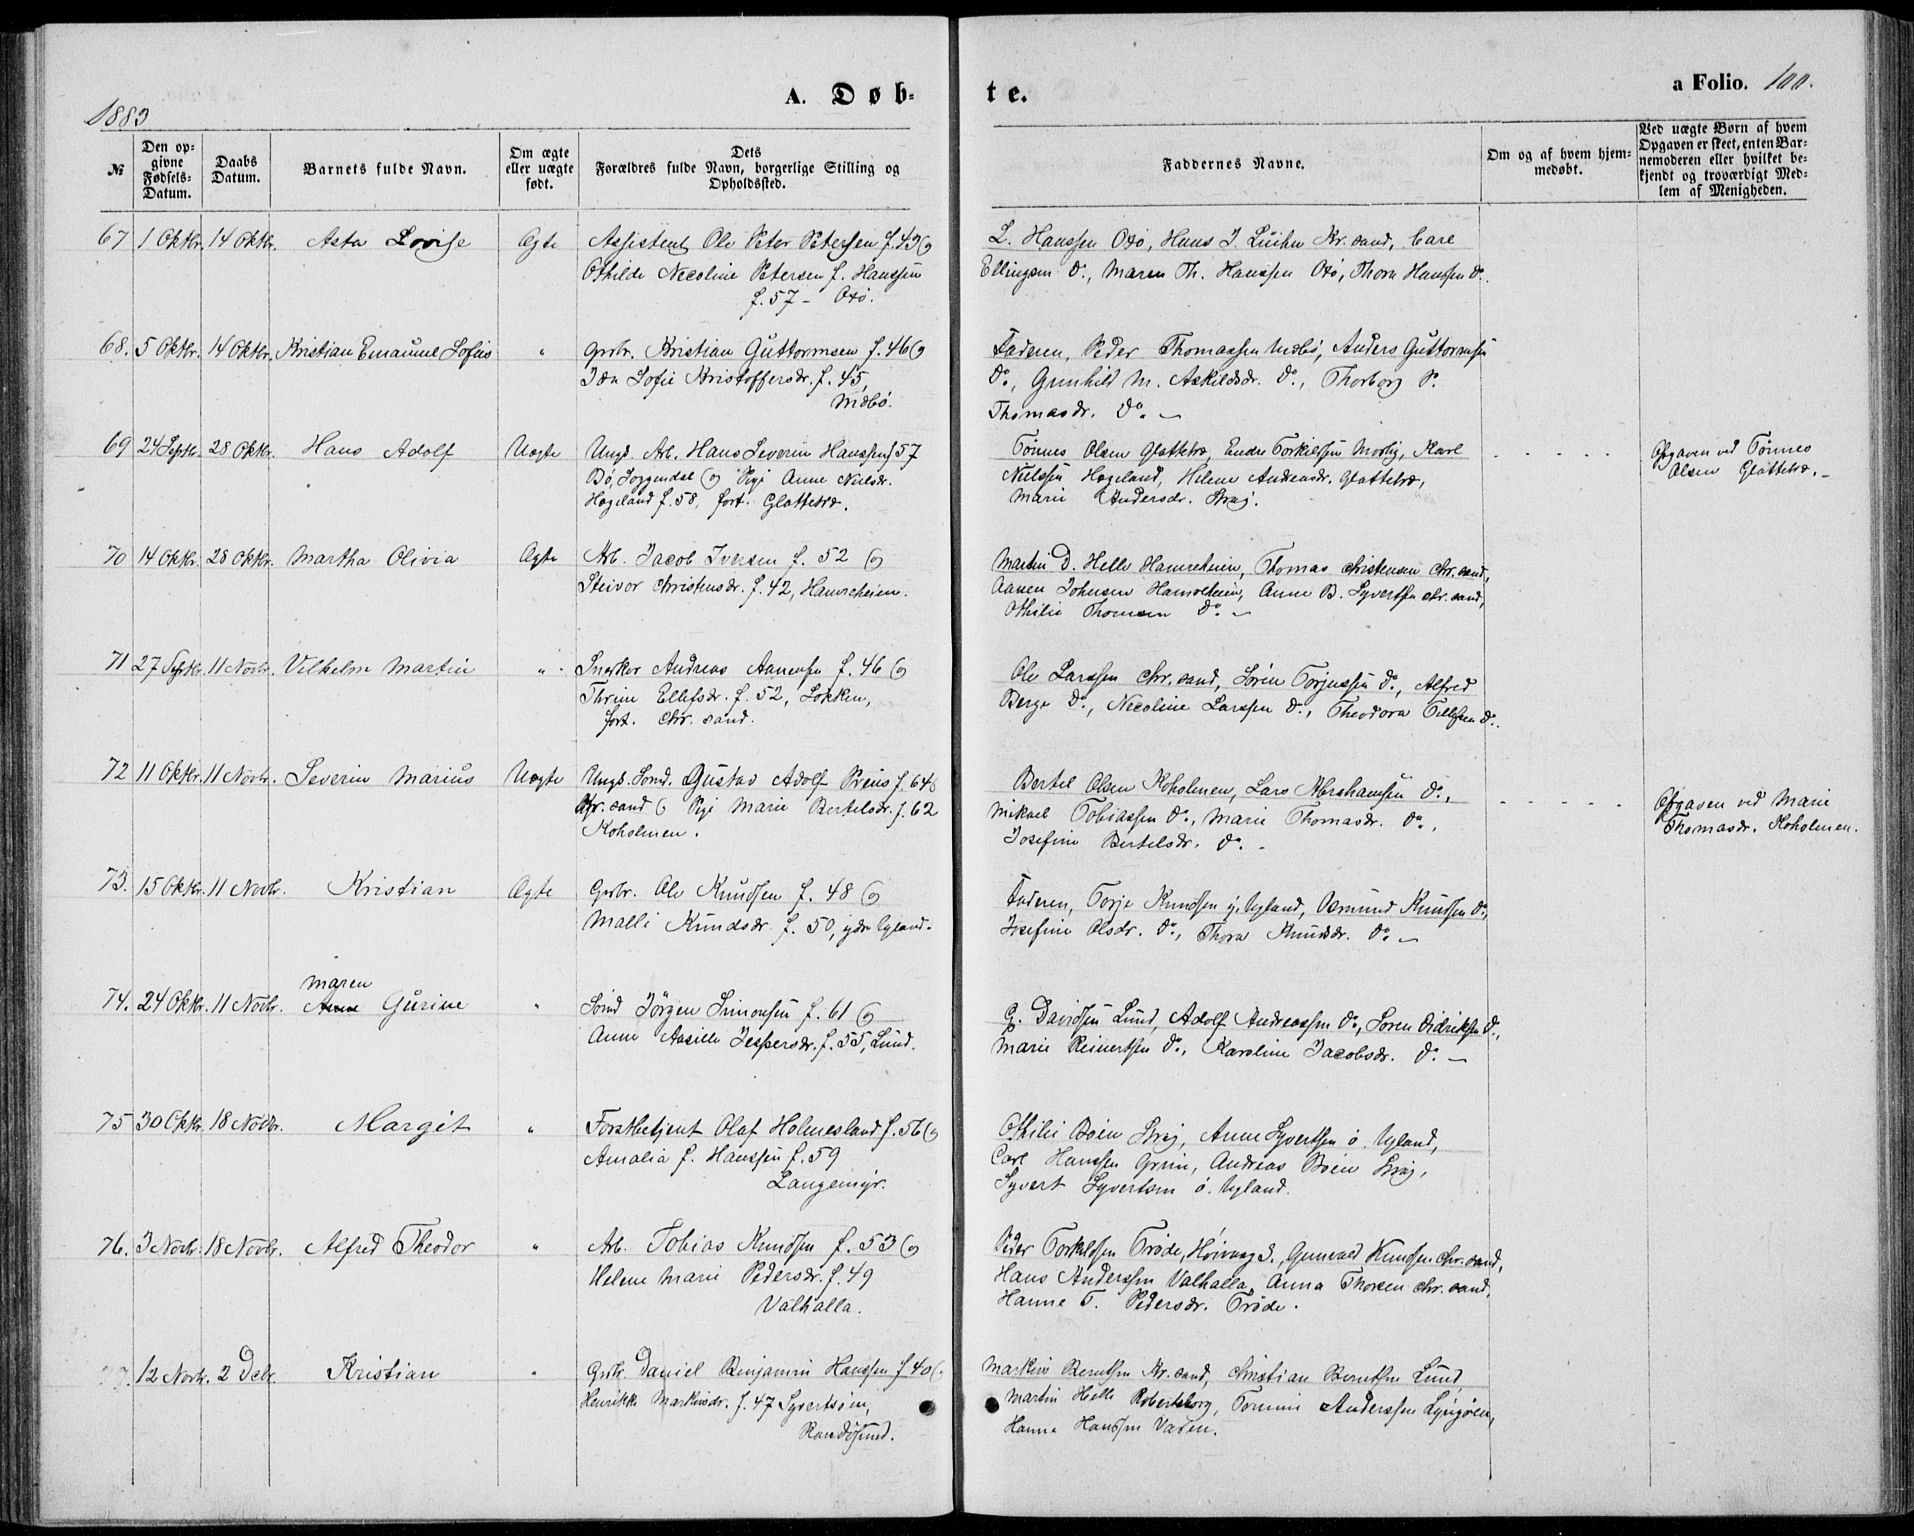 1883
A. Døb-
te.
a Folio. 100.
№
Den op-
givne
Fødsels-
Datum.
Daabs
Datum.
Barnets fulde Navn.
Om ægte
eller uægte
født.
Dets
Forældres fulde Navn, borgerlige Stilling og
Opholdssted.
Faddernes Navne.
Om og af hvem hjem-
medøbt.
Ved uægte Børn af hvem
Opgaven er skeet, enten Bar-
nemoderen eller hvilket be-
kjendt og troværdigt Med-
lem af Menigheden.
67 1 Oktbr. 14 Oktbr. Asta Lovise Ægte Assistent Ole Peter Petersen f. 43 og
Othilde Nicoline Petersen f. Hanssen
f. 57 - Oxø.
L. Hanssen Oxø, Hans J. Kr.sand, Carl
Ellingsen do., Maren Th. Hanssen Oxø, Thora Hanssen do.
68. 5 Oktbr. 14 Oktbr. Kristian Emanuel Sofius " Grbr. Kristian Guttormsen f. 46 og
Ida Sofie Kristoffersdr. f. 45,
Mebø.
Faderen, Peder Thomassen Mebø, Anders Guttormsen
do., Gunhild M. Askildsdr. do., Thorborg P.
Thomasdr. do. -
69 24 Septbr. 28 Oktbr. Hans Adolf Uægte Ungk. Arb. Hans Severin Hanssen f 57
Bø, og Pige Anne Nielsdr.
Hageland f. 58, fort. Glattetre.
Tønnes Olsen Glattetre, Endre Torkilsen Moseby, Karl
Nielssen Hageland, Helene Andreasdr. Glattetre,
Marie Andersdr. Strai.
Opgaven ved Tønnes
Olsen Glattetre. -
70 14 Oktbr. 28 Oktbr. Martha Olivia Ægte Arb. Jacob Iversen f. 52 og
Steivor Christensdr. f. 42, Hamreheien.
Martin D. Helle Hamreheien, Thomas Christensen Chr.sand,
Aanen Johnsen Hamreheien, Anne B. Syvertsen Chr.sand,
Othilie Thomsen do. -
71 27 Septbr. 11 Novbr. Vilhelm Martin " Snekker Andreas Aanensen f. 46 og
Thrine Ellefsdr. f. 52, Løkken,
fort. Chr.sand.
Ole Larssen Chr.sand, Sørin Torjussen do., Alfred
Berge do., Nicoline Larssen do., Theodora Tellefsen do.
72 11 Oktbr. 11 Novbr. Severin Marius Uægte Ungk. Sømd. Gustav Adolf Preus f. 64
Kr.sand og Pige Marie Bertelsdr. f. 62
Koholmen.
Bertel Olsen Koholmen, Lars Abrahamsen do.,
Mikael Tobiassen do., Marie Thomasdr. do.,
Josefine Bertelsdr. do. -
Opgaven ved Marie
Thomasdr. Koholmen.
73. 15 Oktbr. 11 Novbr. Kristian Ægte Grbr. Ole Knudsen f. 48 og
Malli Knudsdr. f. 50, ydre Ugland.
Faderen, Torje Knudsen y. Ugland, Osmund Knudsen do.,
Josefine Olsdr. do., Thora Knudsdr. do. -
Maren
74. 24 Oktbr. 11 Novbr. Anne Gurine " Sømd Jørgen Simonsen f. 61 og
Anne Aasille Jespersdr. f. 55, Lund.
G. Davidsen Lund, Adolf Andreassen do., Søren Didriksen do.,
Marie Reinertsen do., Karoline Jacobsdr. do. -
75 30 Oktbr. 18 Novbr. Margit " Forstbetjent Olaf Holmesland f. 56 og
Amalia f. Hanssen f. 59
Langemyr.
Othilie Boien Strai, Anne Syvertsen ø. Ugland,
Carl Hanssen Grim, Andreas Boien Strai,
Syvert Syvertsen ø. Ugland.
76. 3 Novbr. 18 Novbr. Alfred Theodor " Arb. Tobias Knudsen f. 53 og
Helene Marie Pedersdr. f. 49
Valhalla.
Peder Torkildsen Trøde, Høivaag S., Gunvald Knudsen Chr.sand,
Hans Anderssen Valhalla, Anna Thorsen Chr.sand,
Hanne T. Pedersdr. Trøde.
77. 12 Novbr. 2 Debr. Kristian " Grbr. Daniel Benjamin Hanssen f. 40 og
Henrikke Markusdr. f. 47 Syvertsøen,
Randøsund.
Markus Berntsen Kr.sand, Christian Berntsen Lund,
Martin Helle Robertsborg, Tomine Anderssen Lyngøen,
Hanne Hanssen Vaden.